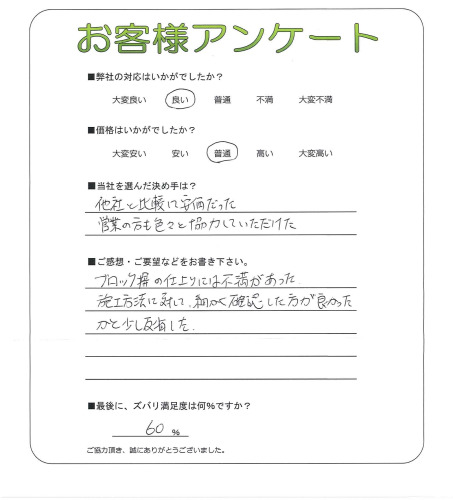 お客様アンケート
■弊社の対応はいかがでしたか？
大変良い 良い 普通 不満 大変不満
■価格はいかがでしたか？
大変安い 安い 普通 高い 大変高い
■当社を選んだ決め手は？
他社と比較して安価だった
営業の方も色々と協力していただけた
■ご感想・ご要望などをお書き下さい。
ブロック塀の仕上りには不満があった
施工方法に対して、細かく確認した方が良かった
かと少し反省した。
■最後に、ズバリ満足度は何％ですか？
60 %
ご協力頂き、誠にありがとうございました。